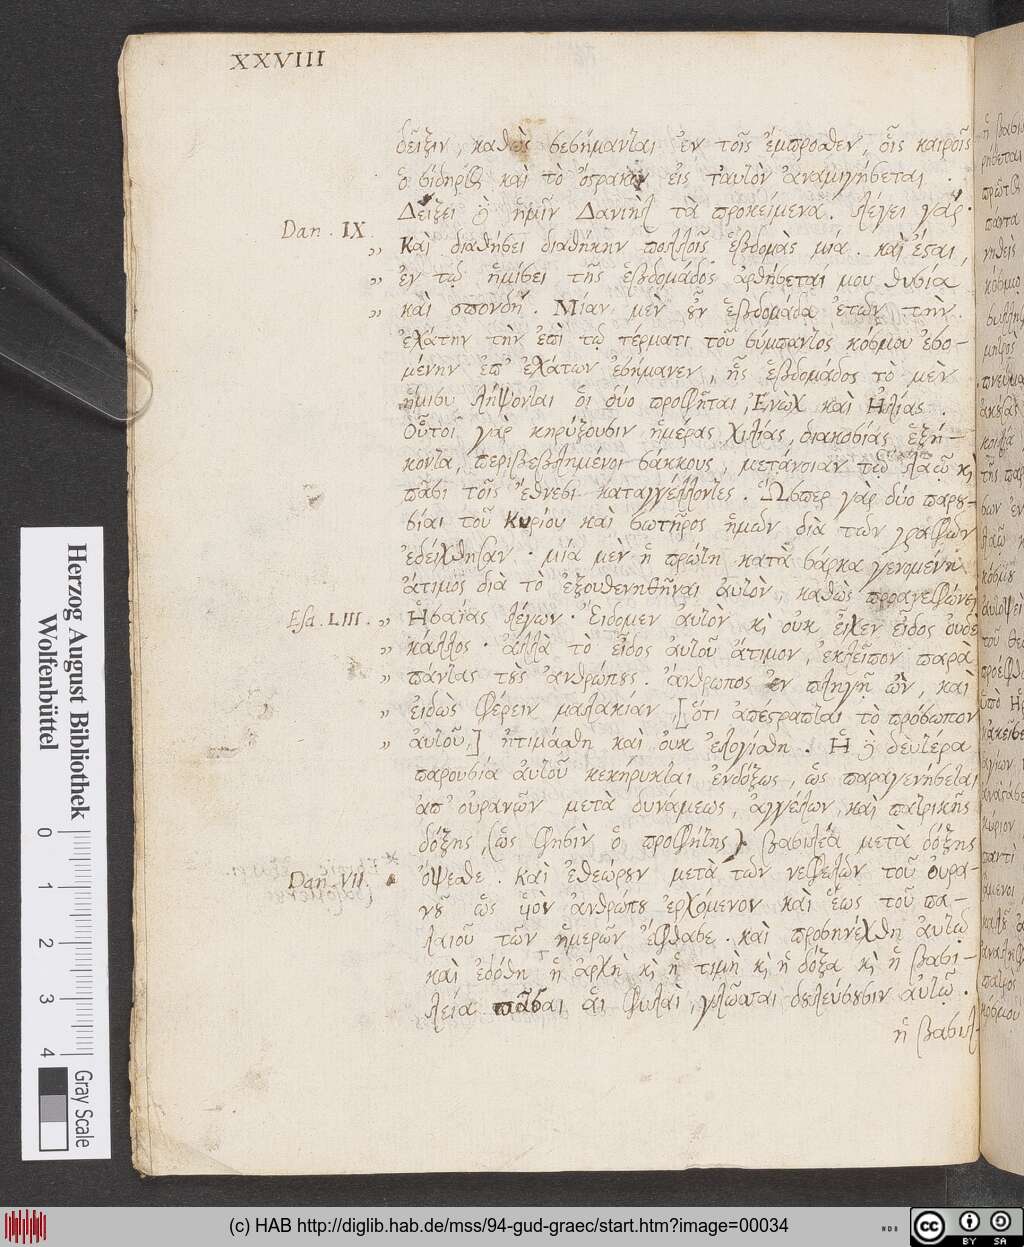 XXVIII
δεῖξιν, καθὼς σεσήμανται ἐν τοῖς ἔμπροσθεν, οἷς καιροῖς
ὁ σίδηρος καὶ τὸ ὄστρακον εἰς ταυτὸν ἀναμιγήσεται.
Δείξει δὲ ἡμῖν Δανιὴλ τὰ προκείμενα. λέγει γάρ.
Dan. IX.
„ Καὶ διαθήσει διαθήκην πολλοῖς ἑβδομὰς μία. καὶ ἔσται,
„ ἐν τῷ ἡμίσει τῆς ἑβδομάδος ἀρθήσεται μου θυσία
„ καὶ σπονδή. Μίαν μὲν οὖν ἑβδομάδα ἐτῶν τὴν
ἐσχάτην τὴν ἐπὶ τῷ τέρματι τοῦ σύμπαντος κόσμου ἐσο-
μένην ἐπ' ἐσχάτων ἐσήμανεν, ἧς ἑβδομάδος τὸ μὲν
ἥμισυ λήψονται οἱ δύο προφῆται, Ἐνὼχ καὶ Ἠλίας.
Οὗτοι γὰρ κηρύξουσιν ἡμέρας χιλίας, διακοσίας ἑξή-
κοντα, περιβεβλημένοι σάκκους, μετάνοιαν τῷ λαῷ κ̀
πᾶσι τοῖς ἔθνεσι καταγγέλλοντες. Ὥσπερ γὰρ δύο παρου-
σίαι τοῦ Κυρίου καὶ σωτῆρος ἡμῶν διὰ τῶν γραφῶν
ἐδείχθησαν. μία μὲν ἡ πρώτη κατὰ σάρκα γενομένη
ἄτιμος διὰ τὸ ἐξουθενηθῆναι αὐτὸν, καθὼς προανεφώνει
Esa. LIII.
„ Ἡσαΐας λέγων. Εἴδομεν αὐτὸν κ̀ οὐκ εἶχεν εἶδος οὐδὲ
„ κάλλος. ἀλλὰ τὸ εἶδος αὐτοῦ ἄτιμον, ἐκλεῖπον παρὰ
„ πάντας τοὺς ἀνθρώπους. ἄνθρωπος ἐν πληγῇ ὢν, καὶ
„ εἰδὼς φέρειν μαλακίαν, [ὅτι ἀπέστραπται τὸ πρόσωπον
„ αὐτοῦ,] ἠτιμάσθη καὶ οὐκ ἐλογίσθη. Ἡ δὲ δευτέρα
παρουσία αὐτοῦ κεκήρυκται ἐνδόξως, ὡς παραγενήσεται
ἀπ' οὐρανῶν μετὰ δυνάμεως, ἀγγέλων, καὶ πατρικῆς
δόξης, (ὡς φησὶν ὁ προφήτης) βασιλέα μετὰ δόξης
Dan. VII.
ὄψεσθε. Καὶ ἐθεώρουν μετὰ τῶν νεφελῶν τοῦ οὐρα-
νοῦ ὡς υἱὸν ἀνθρώπου ἐρχόμενον καὶ ἕως τοῦ πα-
λαιοῦ τῶν ἡμερῶν ἔφθασε. καὶ προσηνέχθη αὐτῷ
καὶ ἐδόθη ἡ ἀρχὴ κ̀ ἡ τιμὴ κ̀ ἡ δόξα κ̀ ἡ βασι-
λεία πᾶσαι αἱ φυλαὶ, γλῶσσαι δουλεύσουσιν αὐτῷ.
ἡ βασιλ
Herzog August Bibliothek
Wolfenbüttel
0 1 2 3 4
Gray Scale
(c) HAB http://diglib.hab.de/mss/94-gud-graec/start.htm?image=00034
WDB
cc BY SA